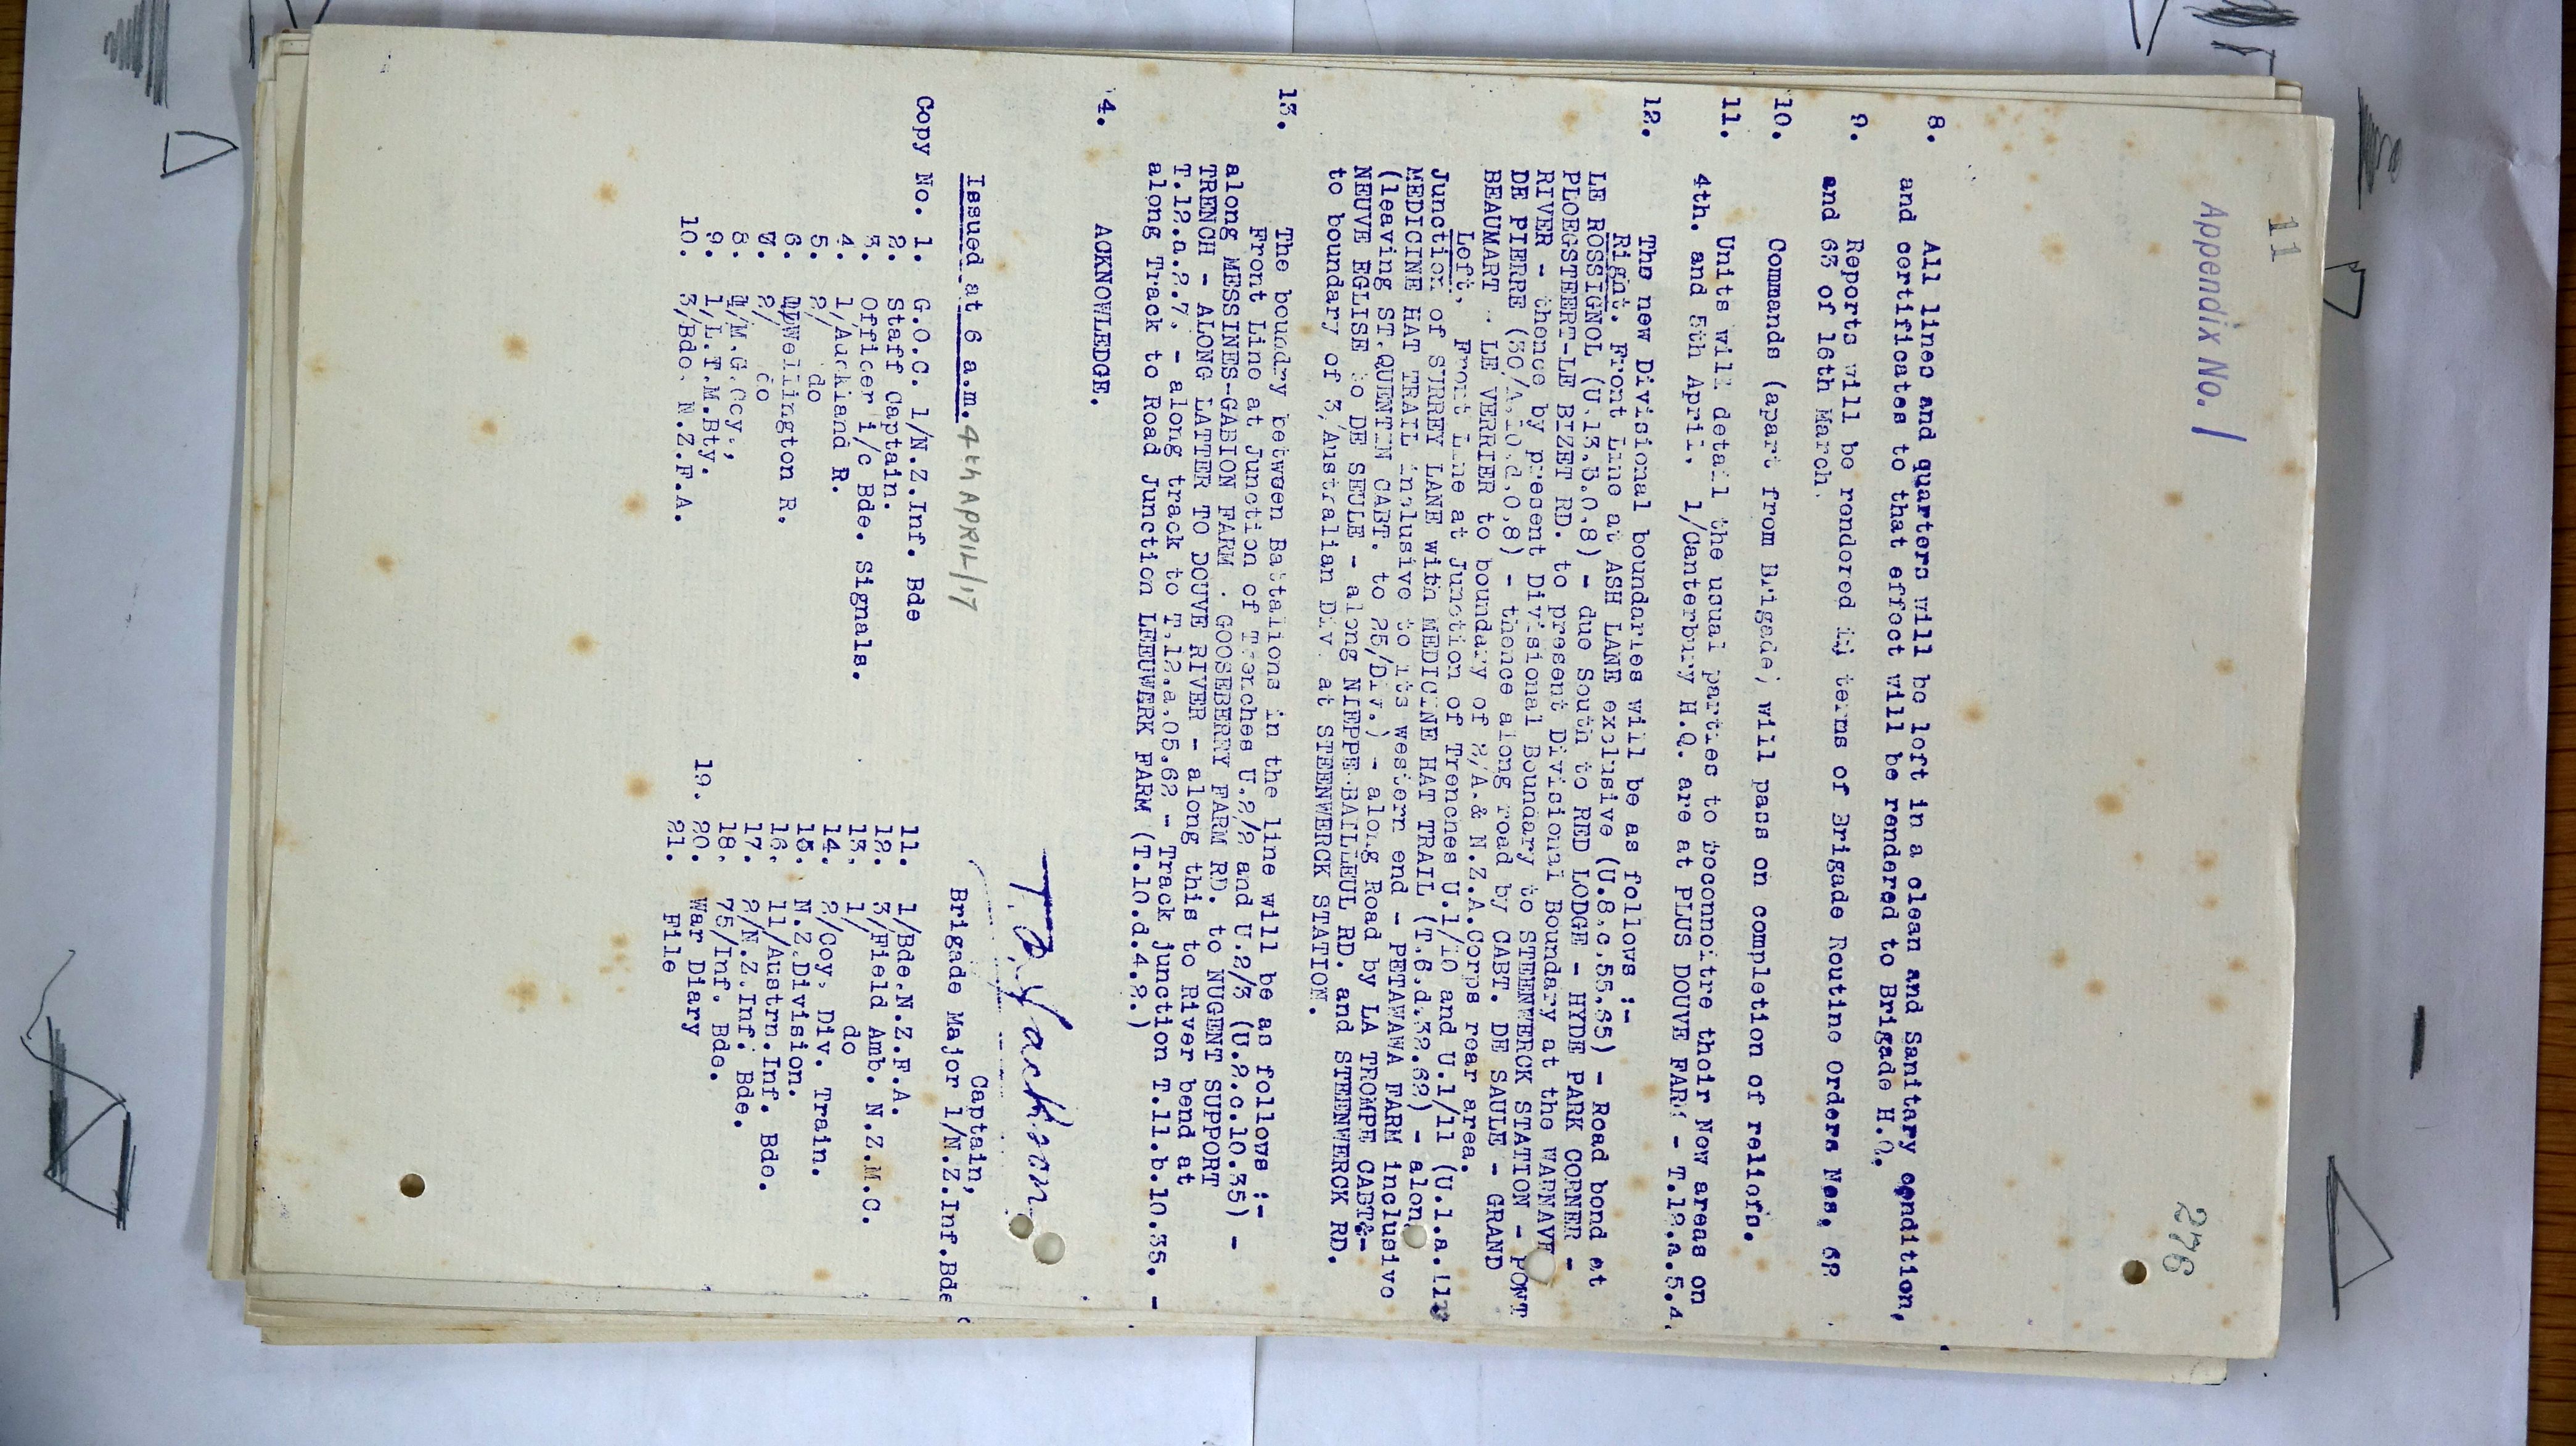 11
Appendix No. 1
276
8. All lines and quarters will be left in a clean and Sanitary condition,
and certificates to that effect will be rendered to Brigade H.Q.
9. Reports will be rendered in terms of Brigade Routine Orders Nos. 62
and 63 of 16th March.
10. Commands (apart from Brigade) will pass on completion of reliefs.
11. Units will detail the usual parties to reconnoitre their New areas on
4th. and 5th April. 1/Canterbury H.Q. are at PLUS DOUVE FARM - T.12.a.5.4.
12. The new Divisional boundaries will be as follows :-
Right. Front Line at ASH LANE exclusive (U.8.c.55.65) - Road bend at
LE ROSSIGNOL (U.13.b.0.8) - due South to RED LODGE - HYDE PARK CORNER -
PLOEGSTEERT-LE BIZET RD. to present Divisional Boundary at the WARNAVE
RIVER - thence by present Divisional Boundary to STEENWERCK STATION - PONT
DE PIERRE (30/A.10.d.0.8) - thence along road by CABT. DE SAULE - GRAND
BEAUMART - LE VERRIER to boundary of 2/A.& N.Z.A.Corps rear area.
Left. Front Line at Junction of Trenches U.1/10 and U.1/11 (U.1.a.
Junction of SURREY LANE with MEDICINE HAT TRAIL (T.6.d.32.62) - along
MEDICINE HAT TRAIL inclusive to its western end - PETAWAWA FARM inclusive
(leaving ST.QUENTIN CABT. to 25/Div.) - along Road by LA TROMPE CABT.-
NEUVE EGLISE to DE SEULE - along NIEPPE-BAILLEUL RD. and STEENWERCK RD.
to boundary of 3/Australian Div. at STEENWERCK STATION.
13. The boundry between Battalions in the line will be as follows :-
Front Line at Junction of Trenches U.2/2 and U.2/3 (U.2.c.10.35) -
along MESSINES-GABION FARM - GOOSEBERRY FARM RD. to NUGENT SUPPORT
TRENCH - ALONG LATTER TO DOUVE RIVER - along this to River bend at
T.12.a.2.7. - along track to T.12.a.05.62 - Track junction T.11.b.10.35. -
along Track to Road Junction LEEUWERK FARM (T.10.d.4.2.)
4. ACKNOWLEDGE.
Captain,
Brigade Major 1/N.Z.Inf.Bde
Issued at 6 a.m. 4th APRIL/17
Copy No. 1. G.O.C. 1/N.Z.Inf. Bde
2. Staff Captain.
3. Officer i/c Bde. Signals.
4. 1/Auckland R.
5. 2/ do
6. 1/Wellington R.
7. 2/ do
8. 1/M.G.Coy.,
9. 1/L.T.M.Bty.
10. 3/Bde. N.Z.F.A.
11. 1/Bde.N.Z.F.A.
12. 3/Field Amb. N.Z.M.C.
13. 1/ do
14. 2/Coy. Div. Train.
15. N.Z.Division.
16. 11/Austrn.Inf. Bde.
17. 2/N.Z.Inf. Bde.
18. 75/Inf. Bde.
19. 20. War Diary
21. File